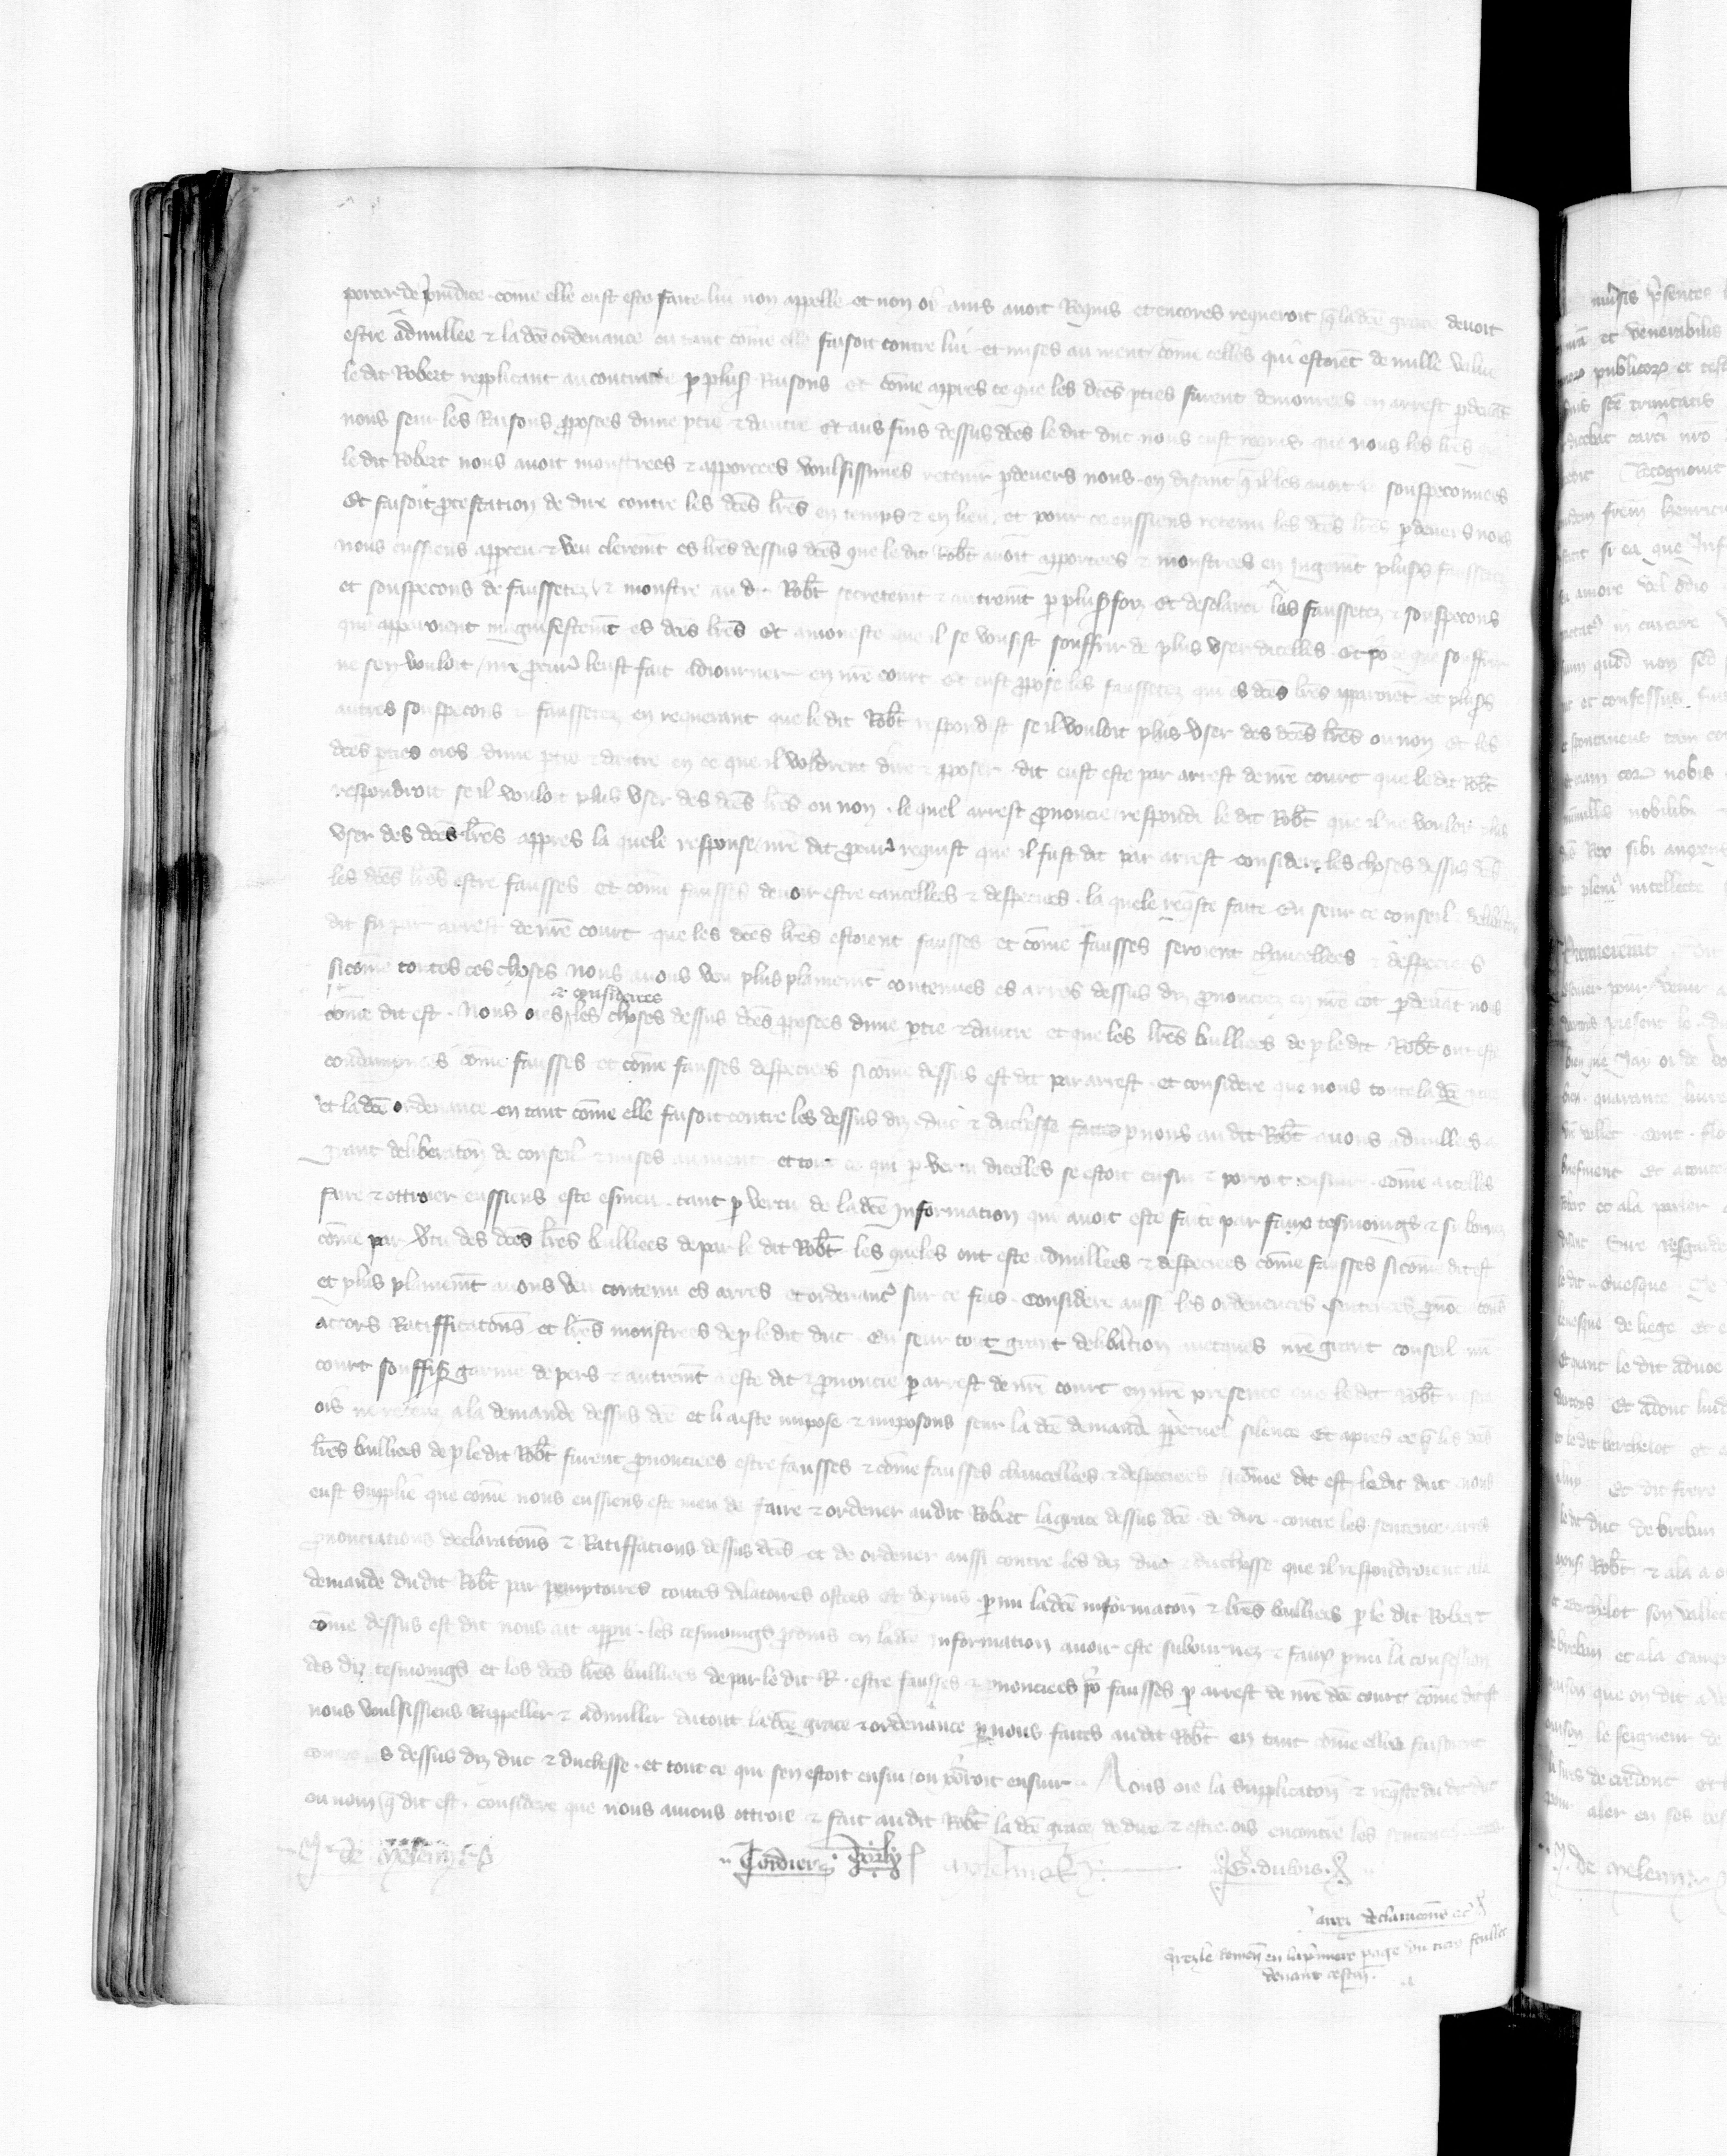 porter de p̄iudice come elle eust este faite lui non appelle et non oi ains avoit Requis et encores requeroit q̄ la dc̄e grace devoit
estre adnullee ⁊ la dc̄e ordenance en tant come elle faisoit contre lui et mises au nient cōme celles qui estoiēt de nulle value
le dit Robert repplicant au contraire p plus͛s Raisons Et cōme apres ce que les dc̄es pties furent demourees en arrest p devāt
nous seur les Raisons pposees dune ptie ⁊ dautre Et aus fins dessus dc̄es le dit duc nous eust requis que nous les lr̄es que
le dit Robert nous avoit monstrees ⁊ apportees voulsissiens retenir p devers nous en disant q̄ il les avoit souspeconnees
Et faisoit protestation de dire contre les dc̄es lr̄es en temps ⁊ en lieu et pour ce eussiens retenu les dc̄es lr̄es p devers nous
nous eussiens appceu ⁊ veu cleremt̄ es lr̄es dessus dc̄es que le dit Rob̄t avoit apportees ⁊ monstrees en Jugemt̄ plus͛s faussetez
et souspecons de faussetez ⁊ monstre au dit Rob̄t secretemt̄ ⁊ autremt̄ p plus͛s foiz Et desclairei les faussetez ⁊ souspecons
qui apparoient magnifestemt̄ es dc̄es lr̄es Et amoneste que il se vousist souffrir de plus user dicelles Et po͛ ce que souffrir
ne sen vouloit nr̄e pcur͛ leust fait adiourner en nr̄e court Et eust ppose les faussetez qui es dc̄es lr̄es apparoiēt et plus͛s
autres souspecons ⁊ faussetez en requerant que le dit Rob̄t respondist se il vouloit plus user des dc̄es lr̄es ou non Et les
dc̄es pties oies dune ptie ⁊ dautre en ce que il voldrent dire ⁊ pposer dit eust este par arrest de nr̄e court que le dit Rob̄t
respondroit se il vouloit plus user des dc̄es lr̄es ou non . le quel arrest pnoncie respondi le dit Rob̄t que il ne vouloit plus
user des dc̄es lr̄es appres la quele response nr̄e dit pcur͛ requist que il fust dit par arrest considere les choses dessus dc̄es
les dc̄es lr̄es estre fausses et cōme fausses devoir estre cancellees ⁊ despeciees . la quele req̄ste faite Eu seur ce conseil ⁊ deliberacion
dit fu par arrest de nr̄e court que les dc̄es lr̄es estoient fausses et cōme fausses seroient chancellees ⁊ despeciees
si cōme toutes ces choses nous avons veu plus plainemt̄ contenues es arres dessus diz pnonciez en nr̄e co͛t p devāt nous
cōme dit est . Nous oies ⁊ considerees les choses dessus dc̄es pposees dune ptie ⁊ dautre et que les lr̄es baillees de p le dit Rob̄t ont este
condampnees cōme fausses et cōme fausses despeciees si cōme dessus est dit par arrest et considere que nous toute la dc̄e grace
et la dc̄e ordenance en tant cōme elle faisoit contre les dessus diz duc ⁊ duchesse faites p nous au dit Rob̄t avons adnullees a
grant deliberatōn de conseil ⁊ mises au nient et tout ce qui p vertu dicelles se estoit ensui ⁊ porroit ensuir . Cōme a icelles
faire ⁊ ottroier eussiens este esmeu tant p vertu de la dc̄e Information qui avoit este faite par faux tesmoings ⁊ subornez
cōme par vtu des dc̄es lr̄es baillees de par le dit Rob̄t les queles ont este adnullees ⁊ despeciees cōme fausses si cōme dit est
et plus plainemt̄ avons veu contenu es arres et ordenanc͛ sur ce fais . Considere aussi les ordenences sentences pnonciatōns
accors Ratifficatōns et lr̄es monstrees de p le dit duc Eu seur tout grant delib͛ation avecques nr̄e grant conseil nr̄e
court souffis͛ garnie de pers ⁊ autremt̄ a este dit ⁊ pnoncie p arrest de nr̄e court en nr̄e presence que le dit Rob̄t ne sera
ois ne receuz a la demande dessus dc̄e et li a este impose ⁊ imposons seur la dc̄e demande ppetuel silence Et apres ce q̄ les dc̄es
lr̄es baillees de p le dit Rob̄t furent pnonciees estre fausses ⁊ cōme fausses chancellees ⁊ despeciees si cōme dit est le dit duc nous
eust supplie que come nous eussiens este meu de faire ⁊ ordener au dit Robert la grace dessus dc̄e de dire contre les sentence arres
pnonciations declaratōns ⁊ Ratiffications dessus dc̄es et de ordener aussi contre les diz duc ⁊ duchesse que il respondroient a la
demande du dit Rob̄t par pemptoires toutes dilatoires ostees Et depuis p mi la dc̄e informatōn ⁊ lr̄es baillees p le dit Robert
cōme dessus est dit nous ait appu les tesmoings pduis en la dc̄e Information avoir este subournez ⁊ faux p mi la confession
des diz tesmoings et les dc̄es lr̄es baillees de par le dit R. estre fausses ⁊ pnonciees po͛ fausses p arrest de nr̄e dc̄e court cōme dit est
nous voulsissiens Rappeller ⁊ adnuller du tout la dc̄e grace ⁊ ordenance p nous faites au dit Rob̄t en tant cōme elles faisoient
contre les dessus diz duc ⁊ duchesse . et tout ce qui sen estoit ensui ou porroit ensuir . Nous oie la supplicatōn ⁊ req̄ste du dit duc
ou nom q̄ dit est . considere que nous avions ottroie ⁊ fait au dit Rob̄t la dc̄e grace de dire ⁊ estre ois encontre les sentences arres
J. de Meleun
Cordier
G. dubois
arres declaraciōns ⁊c
querez le demen͛ en la p͛miere page du tiers feullet
devant cestui.